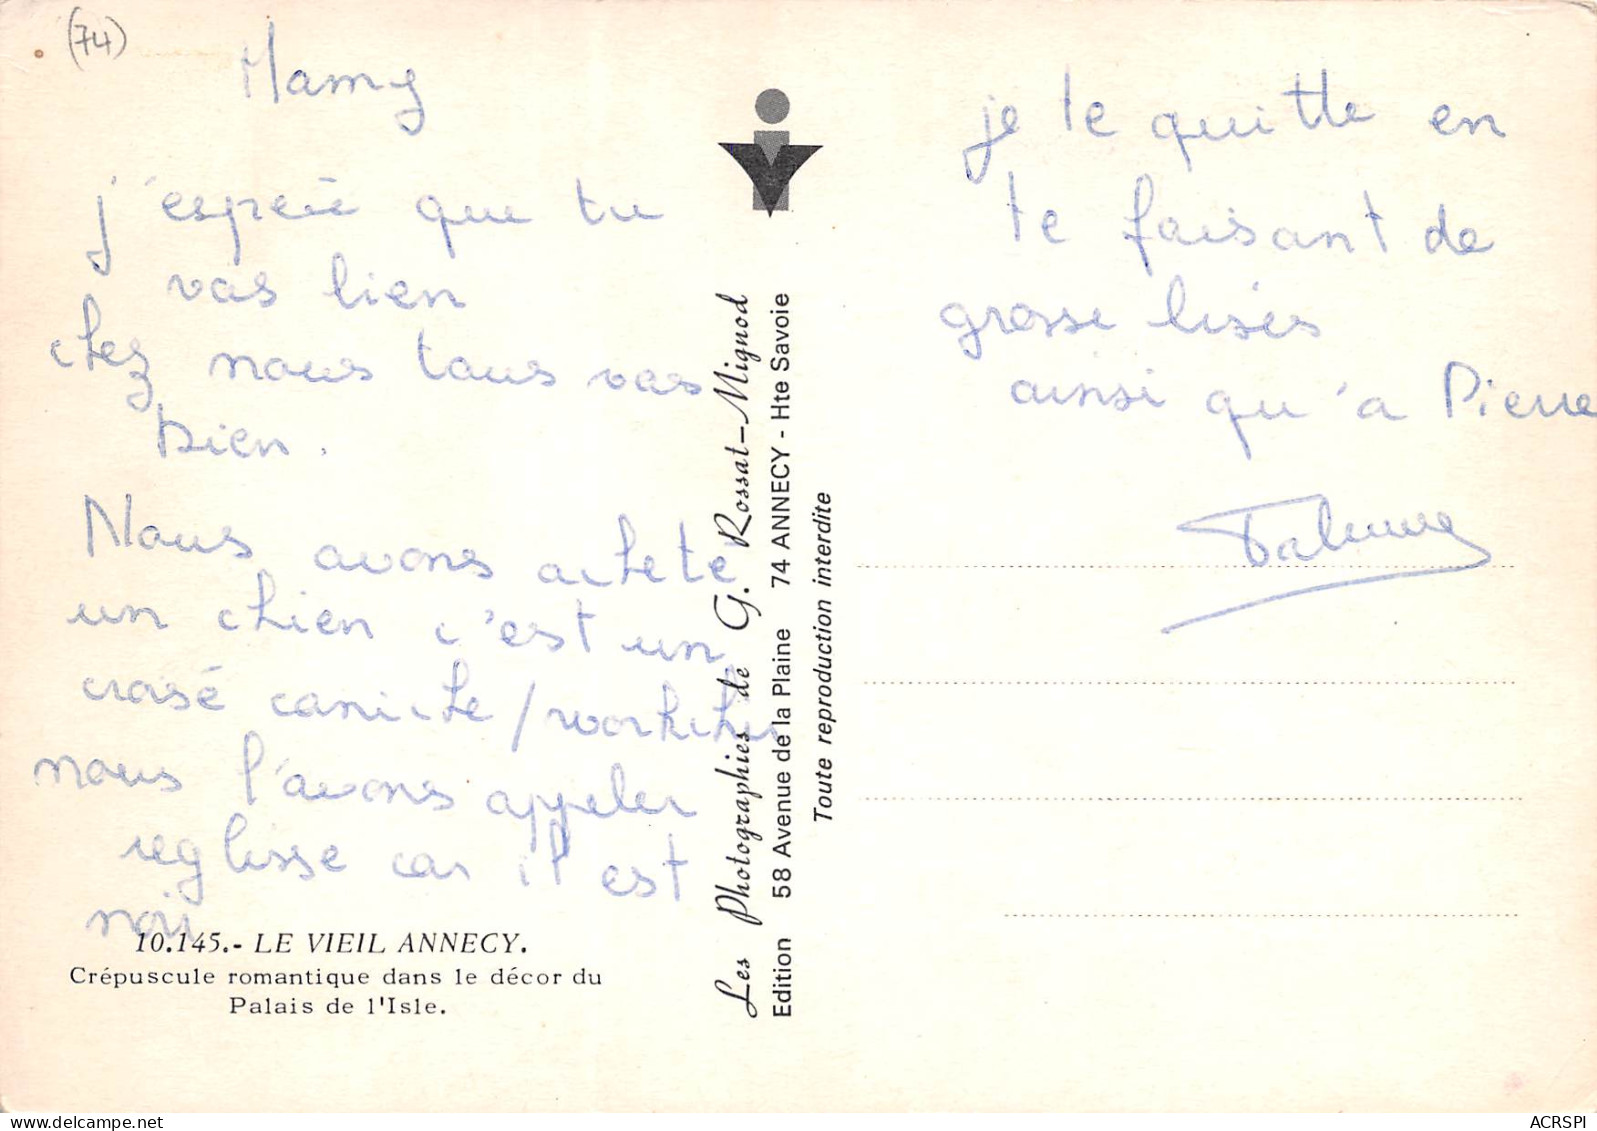 (74)
Mamy
j'espère que tu
vas bien
chez nous tous vas
bien.
Nous avons acheté
un chien c'est un
croisé caniche/workchir
nous l'avons appeler
reglisse car il est
noir
10.145.- LE VIEIL ANNECY.
Crépuscule romantique dans le décor du
Palais de l'Isle.
Les Photographies de G. Rossat-Mignod
Edition 58 Avenue de la Plaine 74 ANNECY - Hte Savoie
Toute reproduction interdite
je te quitte en
te faisant de
grosse bisés
ainsi qu'a Pierre
ACRSPI